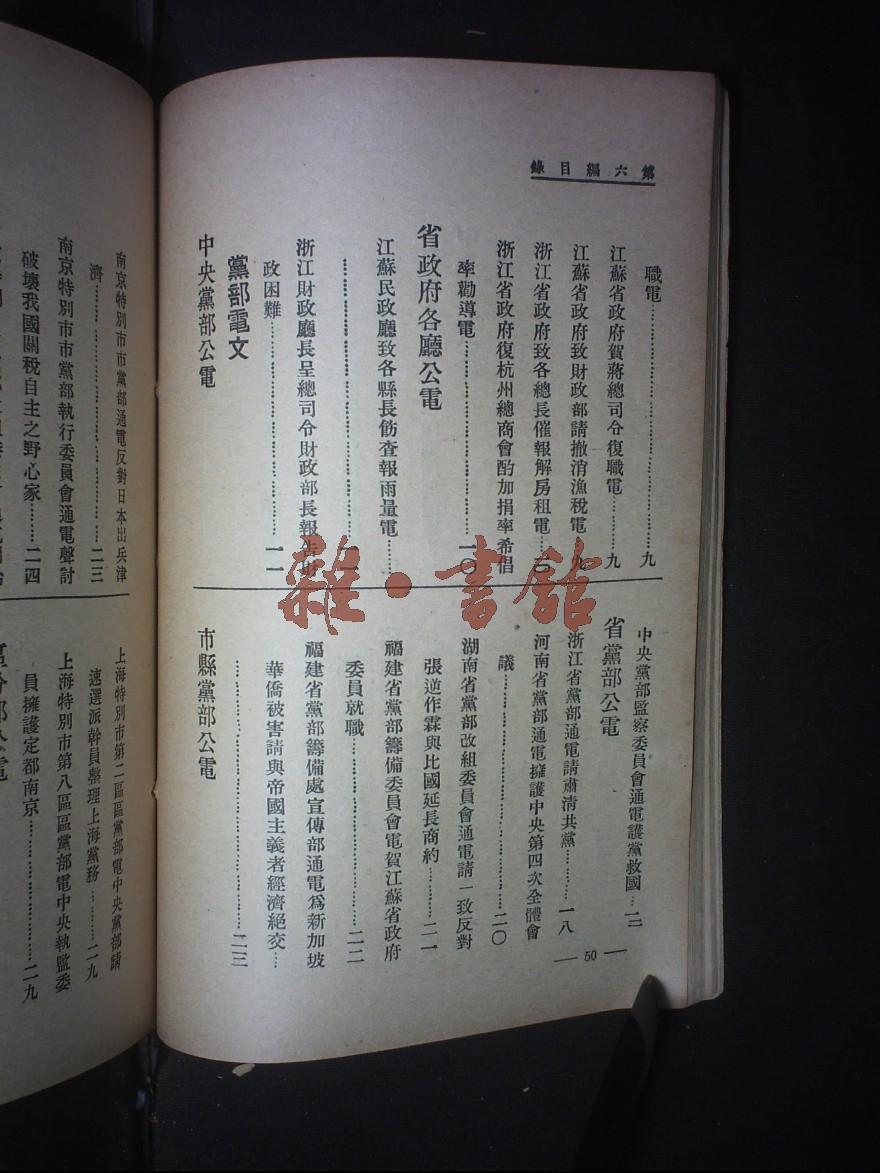 第六編目錄
職電……………………………九
江蘇省政府賀蔣總司令復職電……九
江蘇省政府致財政部請撤消漁稅電
浙江省政府致各總長催報解房租電
浙江省政府復杭州總商會酌加捐率希倡
率勸導電……………………一〇
省政府各廳公電
江蘇民政廳致各縣長飭查報雨量電……
浙江財政廳長呈總司令財政部長報告財
政困難……………………一一
黨部電文
中央黨部公電
中央黨部監察委員會通電護黨救國…一二
省黨部公電
浙江省黨部通電請肅清共黨………一八
河南省黨部通電擁護中央第四次全體會
議……………………二〇
湖南省黨部改組委員會通電請一致反對
張逆作霖與比國延長商約………二一
福建省黨部籌備委員會電賀江蘇省政府
委員就職……………………二二
福建省黨部籌備處宣傳部通電為新加坡
華僑被害請與帝國主義者經濟絕交…
……………………二三
市縣黨部公電
— 50 —
南京特別市市黨部通電反對日本出兵津
濟……………………二三
南京特別市市黨部執行委員會通電聲討
破壞我國關稅自主之野心家………二四
上海特別市第二區區黨部電中央黨部請
速選派幹員整理上海黨務………二九
上海特別市第八區區黨部電中央執監委
員擁護定都南京……………………二九
雜·書館